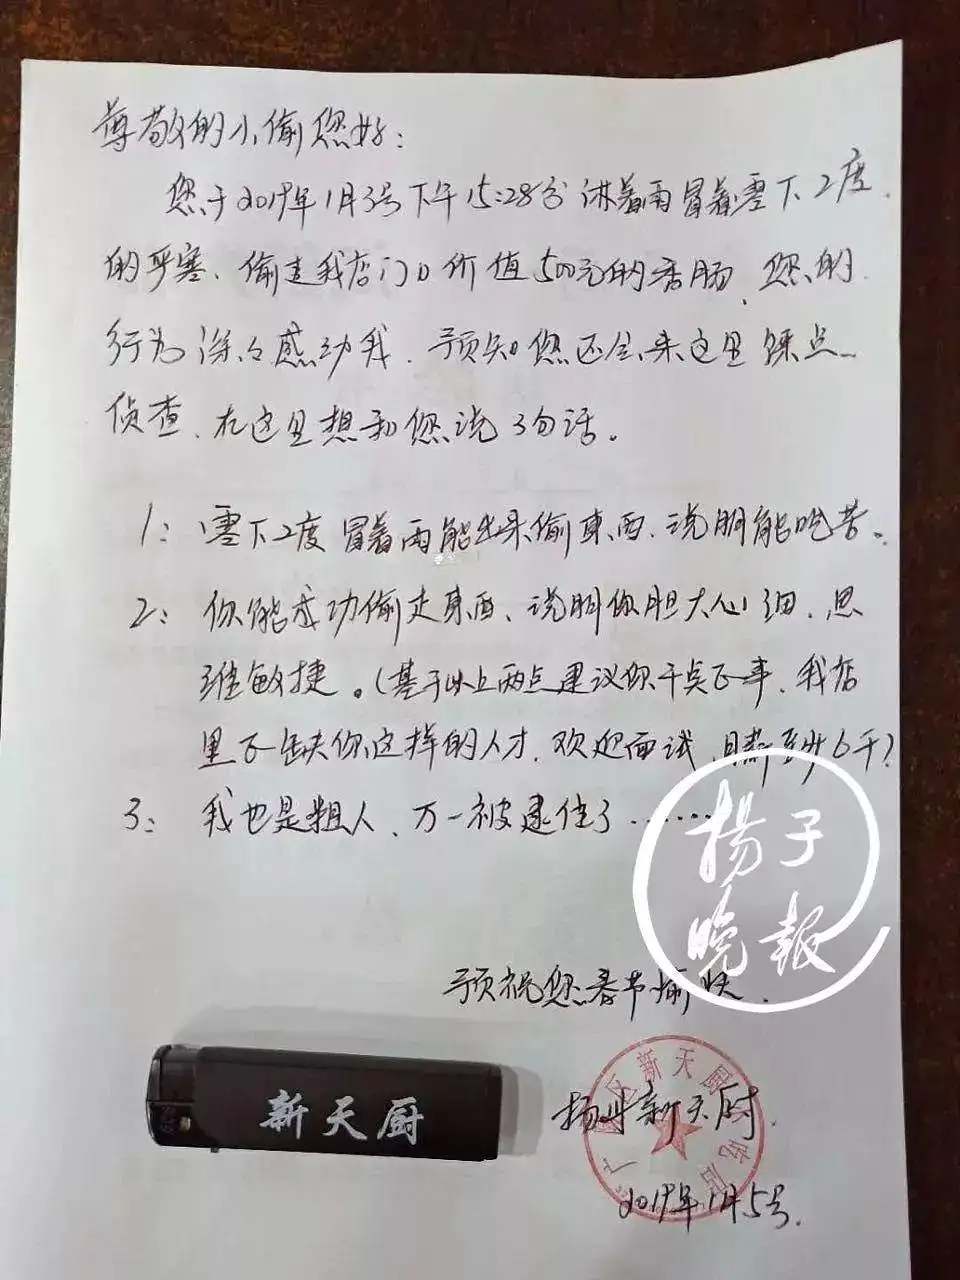 尊敬的小偷您好：
您于2019年1月3号下午15:28分淋着雨冒着零下2度
的严寒、偷走我店门口价值500元的香肠、您的
行为深々感动我、预知您还会来这里踩点
侦查、在这里想和您说3句话。
1：零下2度冒着雨能出来偷東西、说明能吃苦。
2：你能成功偷走東西、说明你胆大心细、思
维敏捷。(基于以上两点建议你干点正事、我店
里正缺你这样的人才、欢迎面试、月薪至少6千?
3：我也是粗人、万一被逮住了……
揚子
晚報
预祝您春节愉快
新天厨
扬州新天厨
区新天厨
吃店
2019年1月5号.